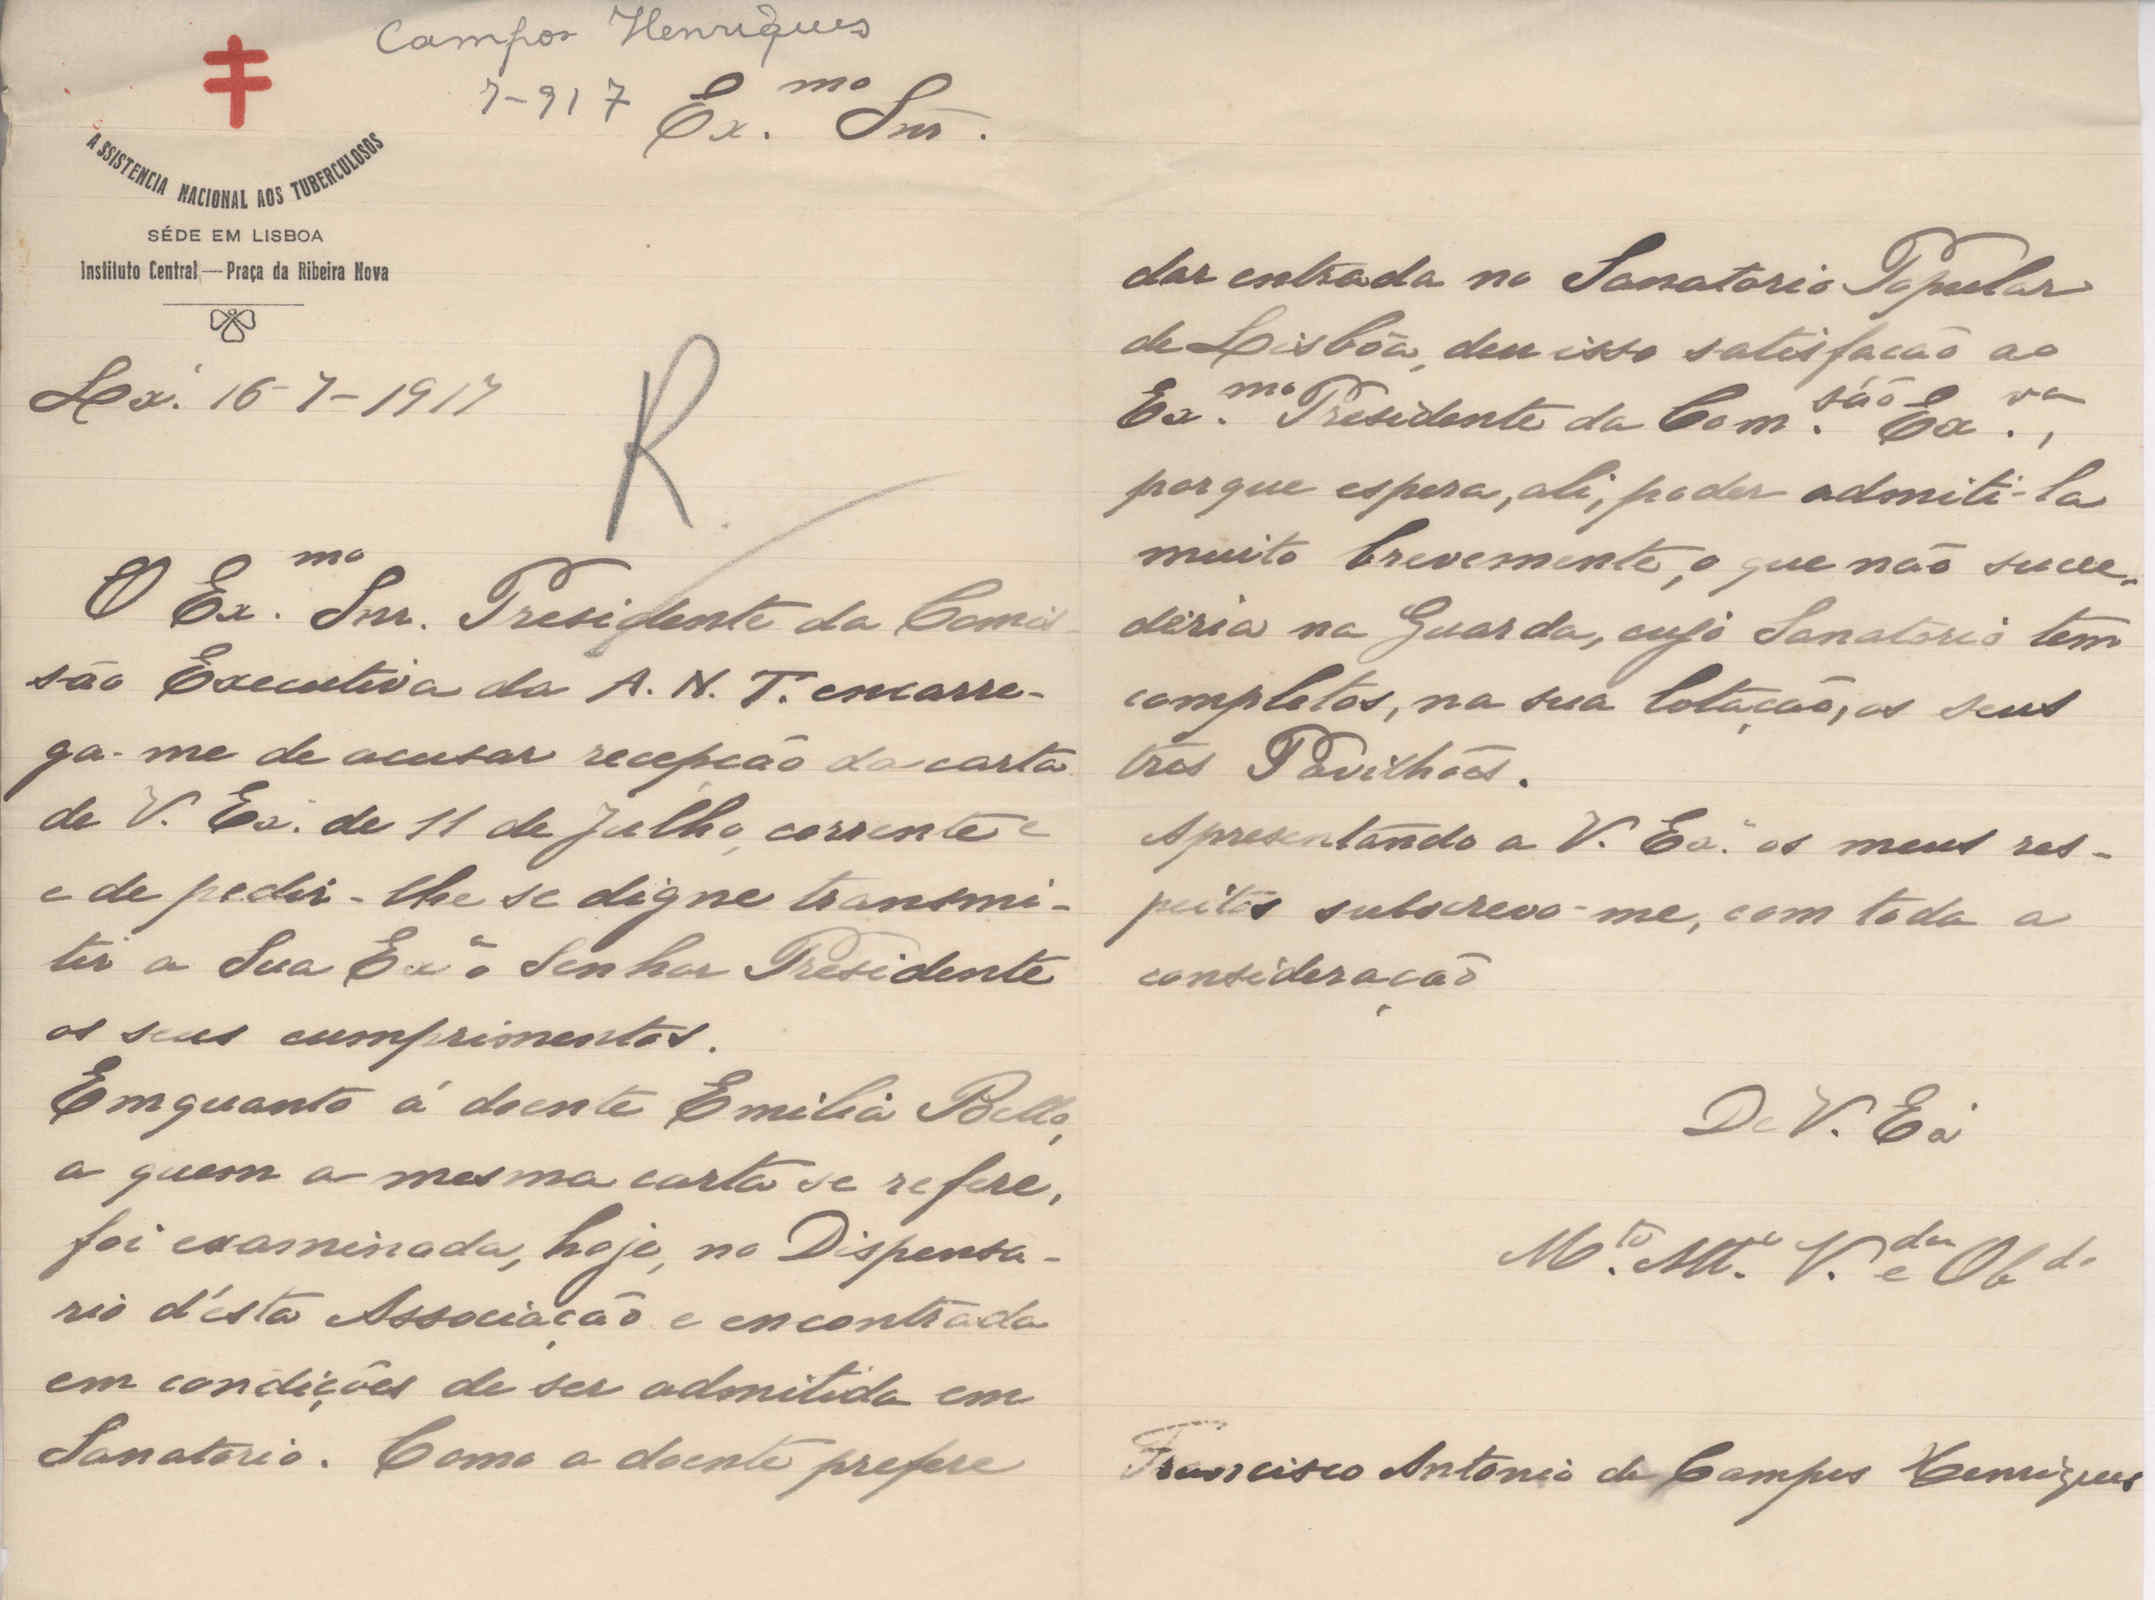 Campos Henriques
7-917
Ex.mo Snr.
ASSISTENCIA NACIONAL AOS TUBERCULOSOS
SÉDE EM LISBOA
Instituto Central — Praça da Ribeira Nova
Lxª. 16-7-1917
R.
O Ex.mo Snr. Presidente da Comis-
são Executiva da A. N. T. encarre-
ga-me de acusar recepção da carta
de V. Exª. de 11 de Julho, corrente e
e de pedir-lhe se digne transmi-
tir a Sua Exª o Senhor Presidente
os seus cumprimentos.
Emquanto á doente Emilia Bello,
a quem a mesma carta se refere,
foi examinada, hoje, no Dispensa-
rio d'esta Associação e encontrada
em condições de ser admitida em
Sanatorio. Como a doente prefere
dar entrada no Sanatorio Popular
de Lisbôa, deu isso satisfação ao
Ex.mo Presidente da Com.são Ex.va,
porque espera, ali, poder admiti-la
muito brevemente, o que não suce-
deria na Guarda, cujo Sanatorio tem
completos, na sua lotação, os seus
tres Pavilhões.
Apresentando a V. Exª. os meus res-
peitos subscrevo-me, com toda a
consideração
De V. Exª
M.to Att.º V.dor e Obdo
Francisco Antonio de Campos Henriques